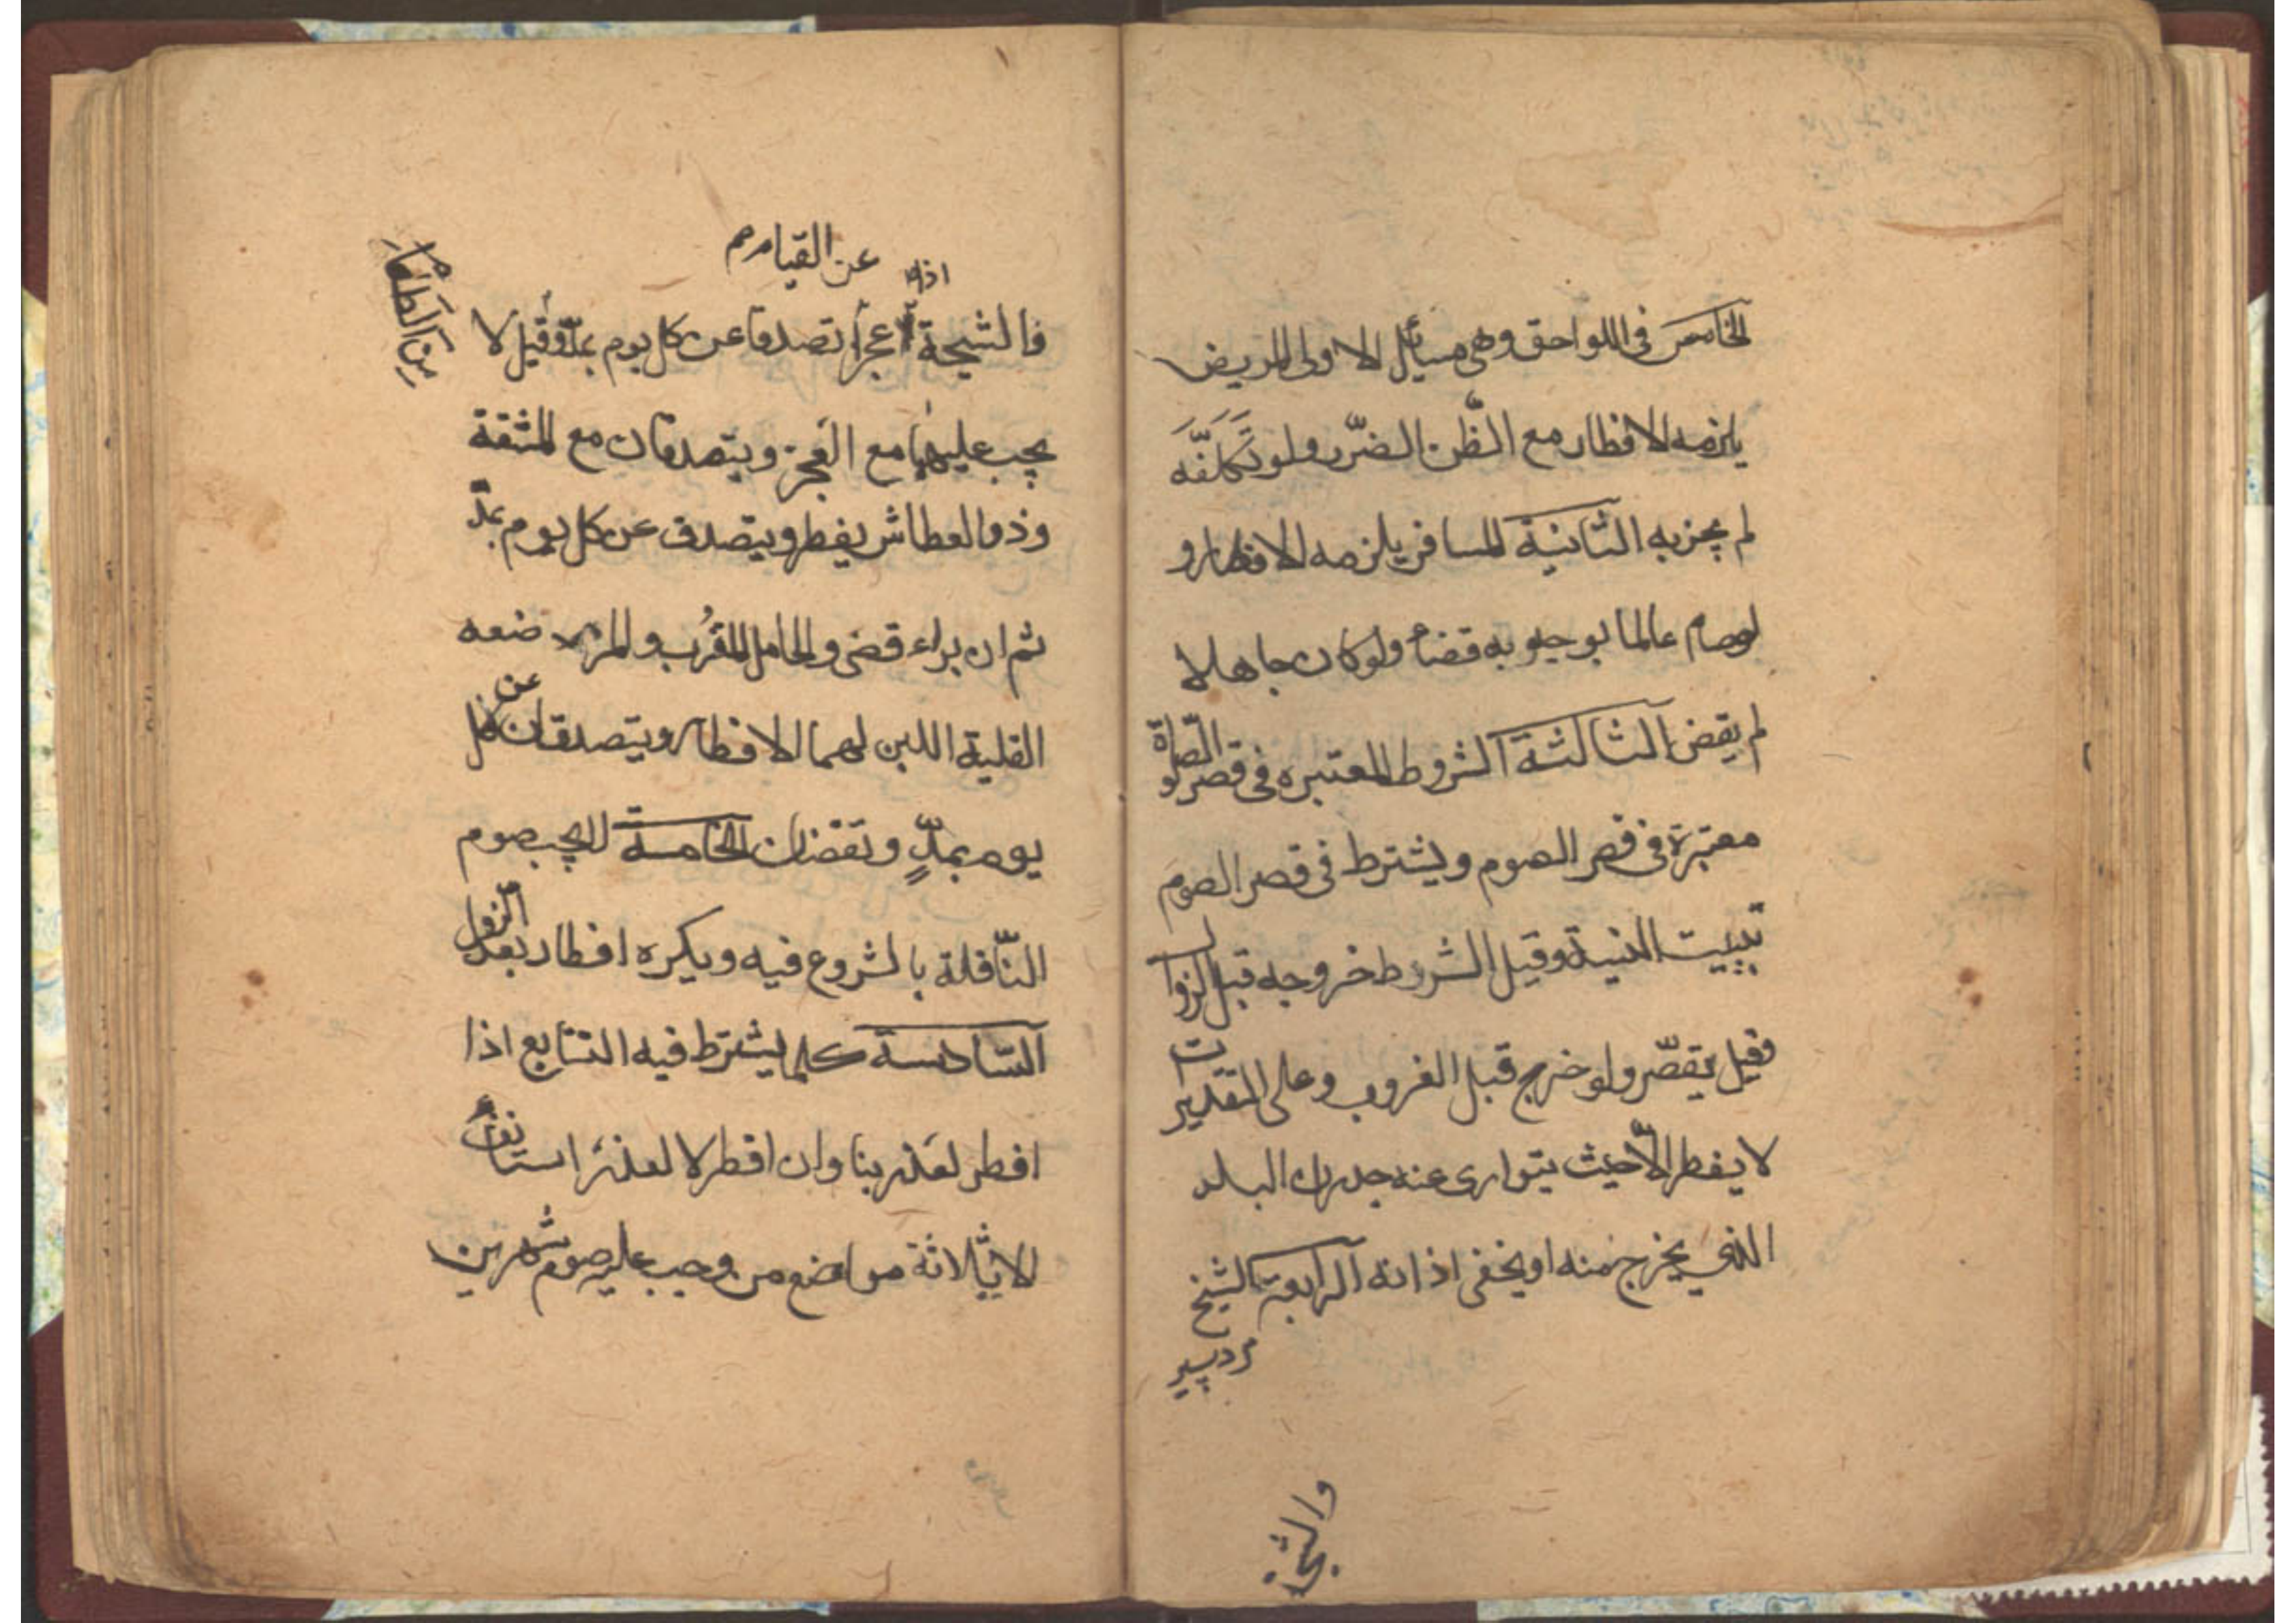 الخامس في اللواحق وهي مسائل الاولى المريض
يلزمه الافطار مع الظّن الضّرر ولو تَكَلَّفَه
لم يجز به الثانية المسافر يلزمه الافطار و
لوصام عالما بوجوبه قضاء ولو كان جاهلا
لم يقض الثالثة الشروط المعتبره في قصر الصّلوة
معتبرة في قصر الصوم ويشترط في قصر الصوم
تبييت النية وقيل الشروط خروجه قبل الزوال
وقيل يقصّر ولو خرج قبل الغروب وعلى التقديرات
لا يفطر الّا حيث يتوارى عنه جدران البلد
الذي يخرج منه او يخفى اذانه الرابعة الشيخ
مرد پیر
والشيخة
عن القيام
اذا
فالشيخة عجزا تصدقا عن كل يوم بمدّ وقيل لا
مِنَ الطعامِ
يجب عليهما مع العجز ويتصدقان مع المشقة
وذو العطاش يفطر ويتصدق عن كل يوم بمدّ
ثم ان براء قضى والحامل المقرب والمرضعه
القلية اللبن لهما الافطار ويتصدقان عن كل
يوم بمدٍّ وتقضيان الخامسة لا يجب صوم
النّافلة بالشروع فيه ويكره افطار بعد الزول
السّادسة كلما يشترط فيه التتابع اذا
افطر لعذر بنا وان افطر لا لعذر استانف
الا ثلاثة مواضع من وجب عليه صوم شهرين